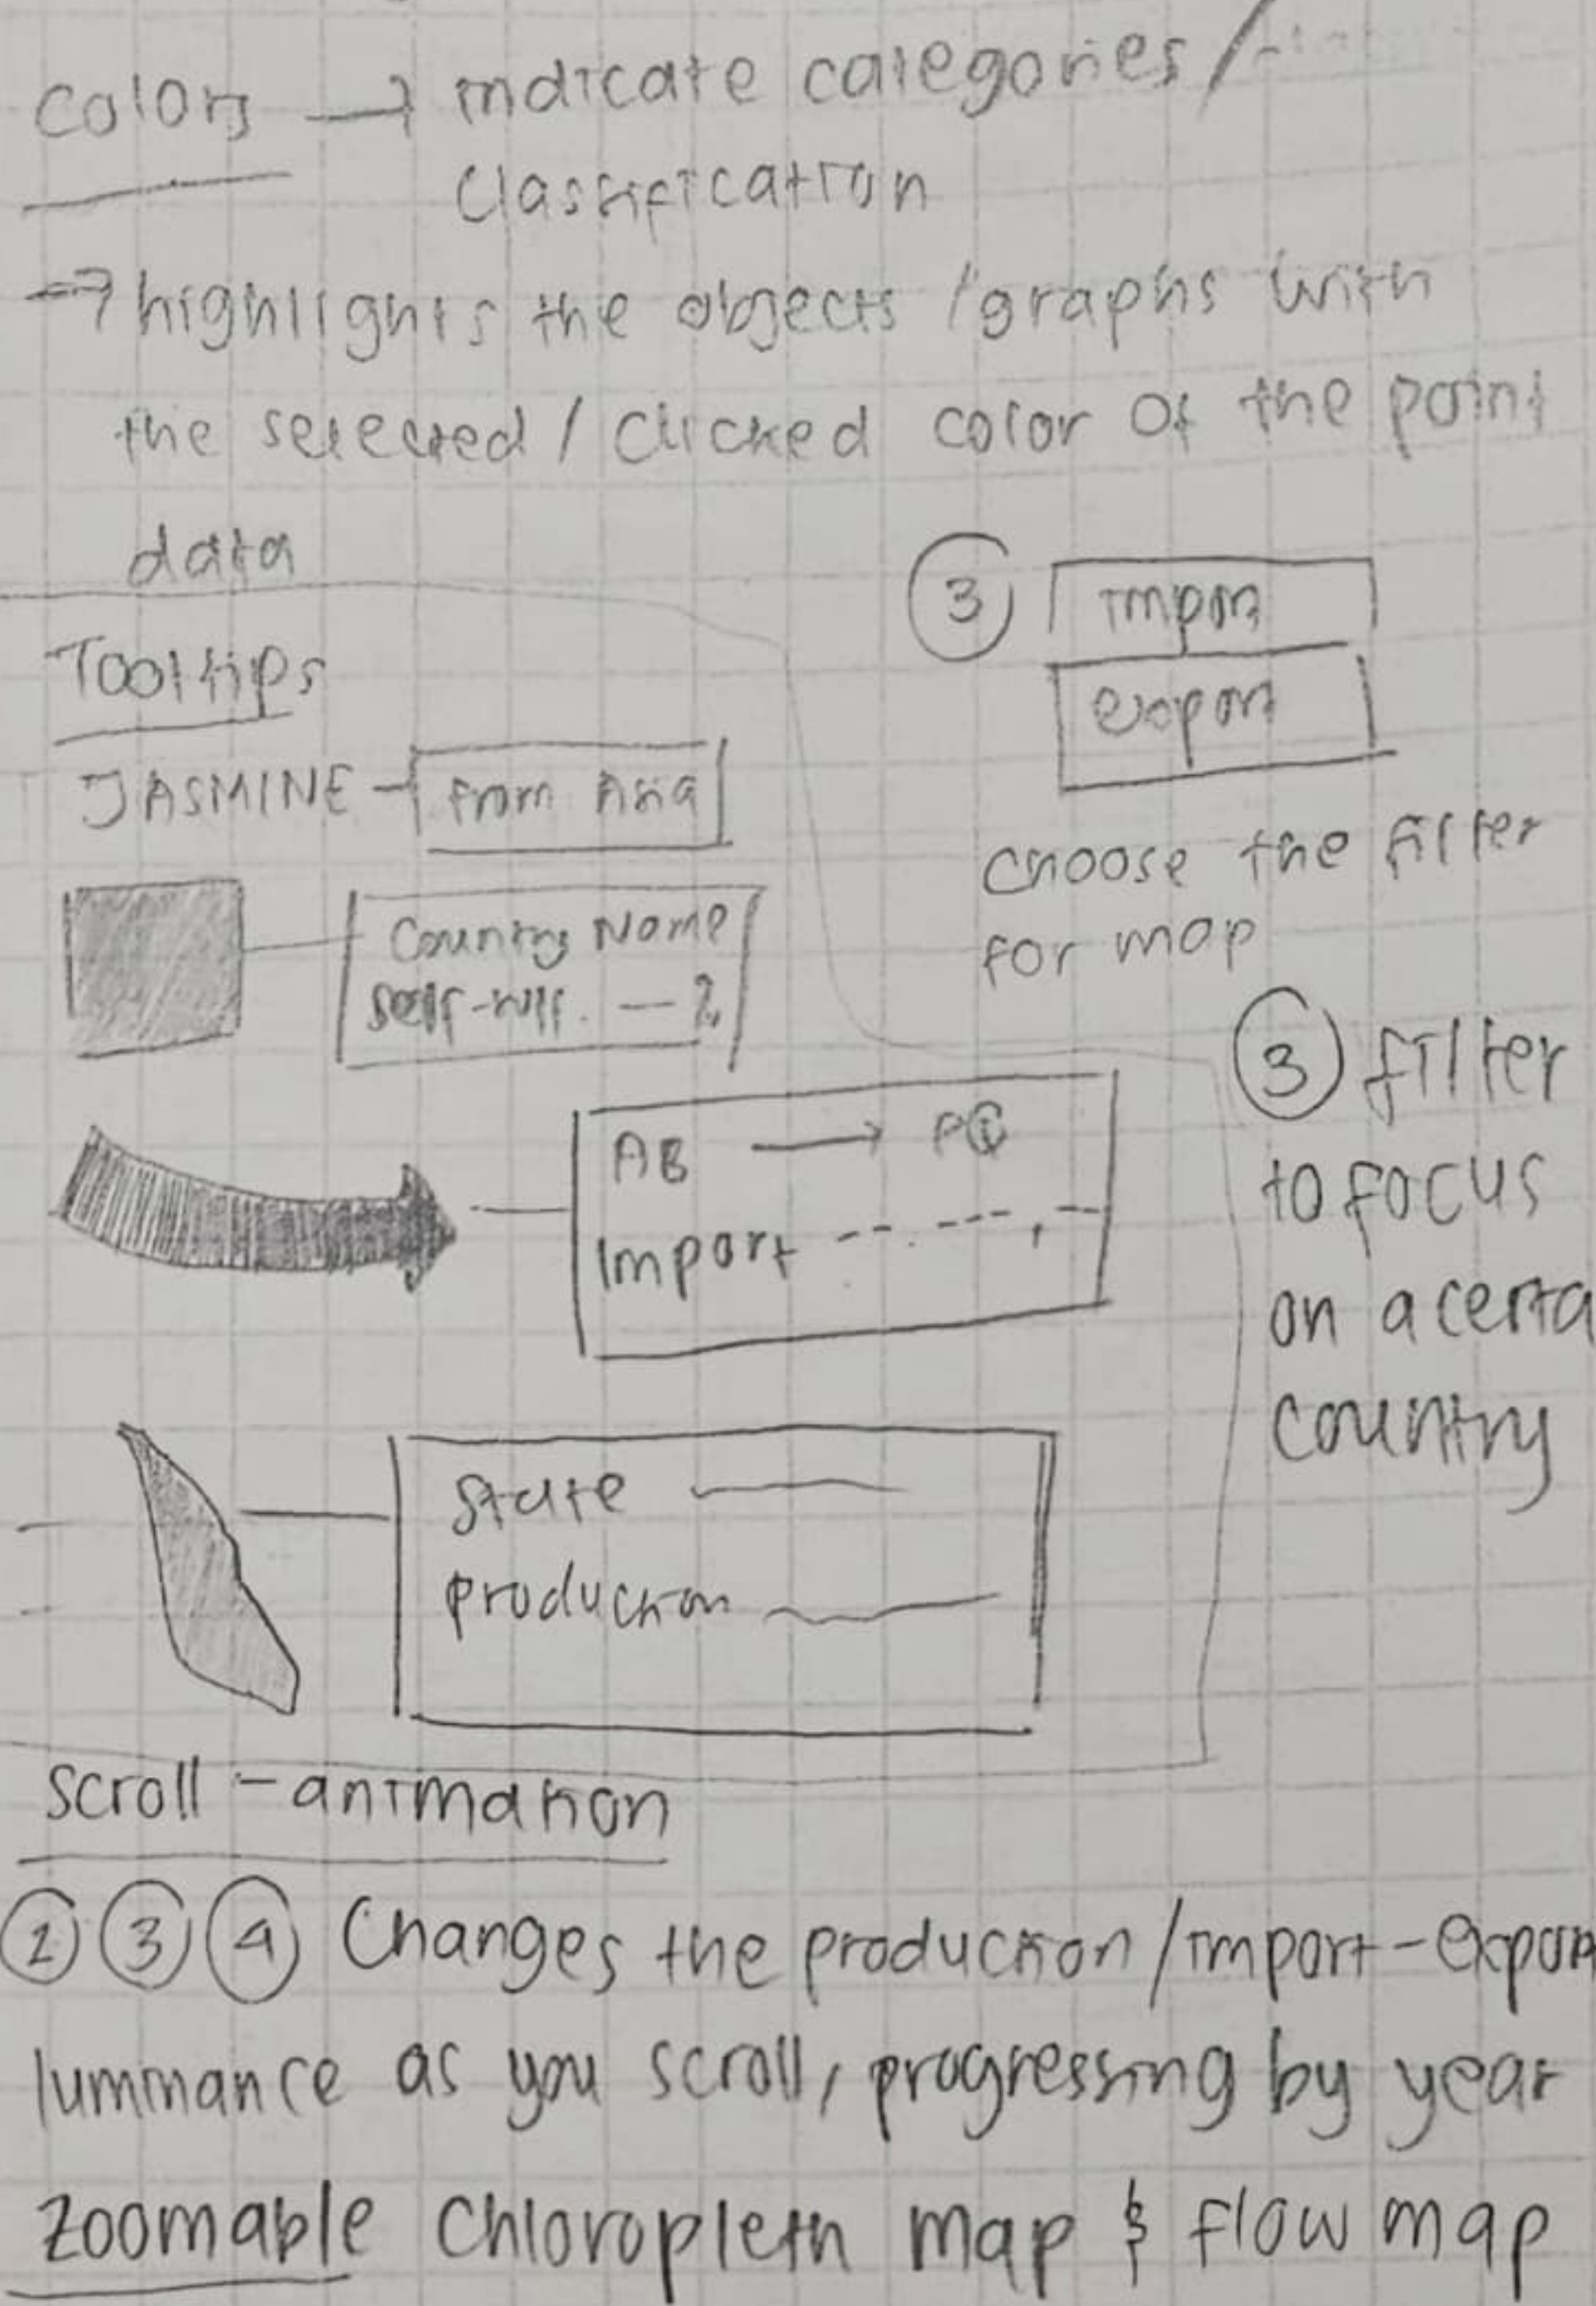 Colors → indicate categories /
Classification
→ highlights the objects / graphs with
the selected / clicked color of the point
data
Tooltips
JASMINE - from Asia
Country Name
Self-suff. — %
AB → PQ
Import --.---,--
State
production
3 Import
export
choose the filter
for map
3 filter
to focus
on a certa
country
scroll - animation
2 3 4 Changes the production / import - export
luminance as you scroll, progressing by year
Zoomable Chloropleth map & flow map